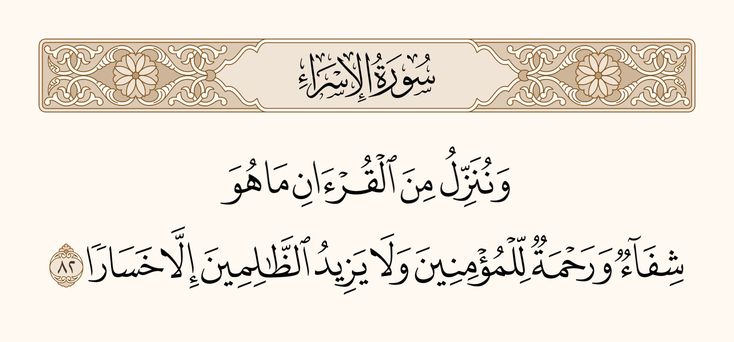 سُورَةُ الإِسْرَاءِ
وَنُنَزِّلُ مِنَ ٱلْقُرْءَانِ مَا هُوَ
شِفَآءٌ وَرَحْمَةٌ لِّلْمُؤْمِنِينَ وَلَا يَزِيدُ ٱلظَّٰلِمِينَ إِلَّا خَسَارًا ٨٢